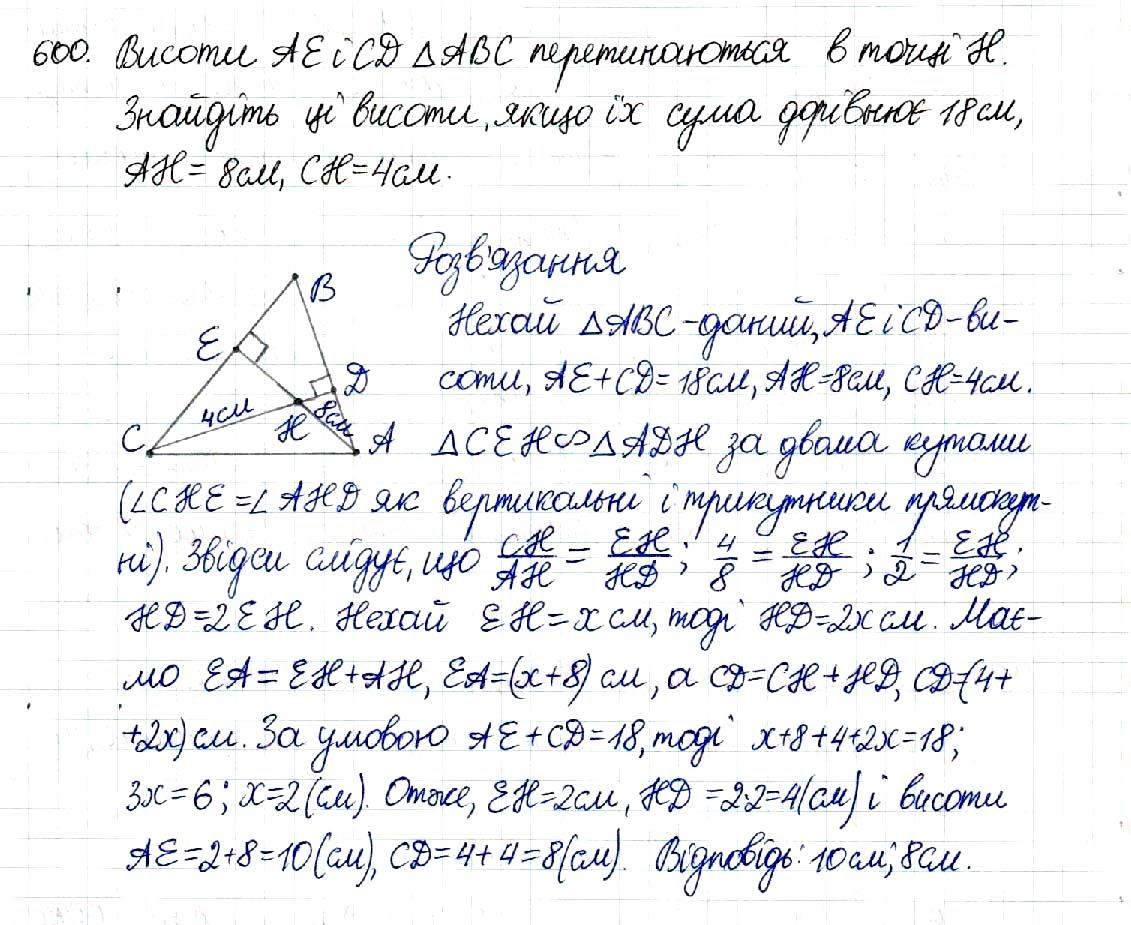 600. Висоти AE і CD △ABC перетинаються в точці H.
Знайдіть ці висоти, якщо їх сума дорівнює 18см,
AH = 8см, CH = 4см.
Розв'язання
B
Нехай △ABC - даний, AE і CD - ви-
E
D
соти, AE + CD = 18см, AH = 8см, CH = 4см.
4см
H
8см
C
A
△CEH ∽ △ADH за двома кутами
(∠CHE = ∠AHD як вертикальні і трикутники прямокут-
ні). Звідси слідує, що CH/AH = EH/HD; 4/8 = EH/HD; 1/2 = EH/HD;
HD = 2EH. Нехай EH = x см, тоді HD = 2x см. Має-
мо EA = EH + AH, EA = (x+8) см, а CD = CH + HD, CD = (4+
+2x) см. За умовою AE + CD = 18, тоді x+8+4+2x = 18;
3x = 6; x = 2 (см). Отже, EH = 2см, HD = 2·2 = 4(см) і висоти
AE = 2+8 = 10 (см), CD = 4+4 = 8(см). Відповідь: 10см; 8см.